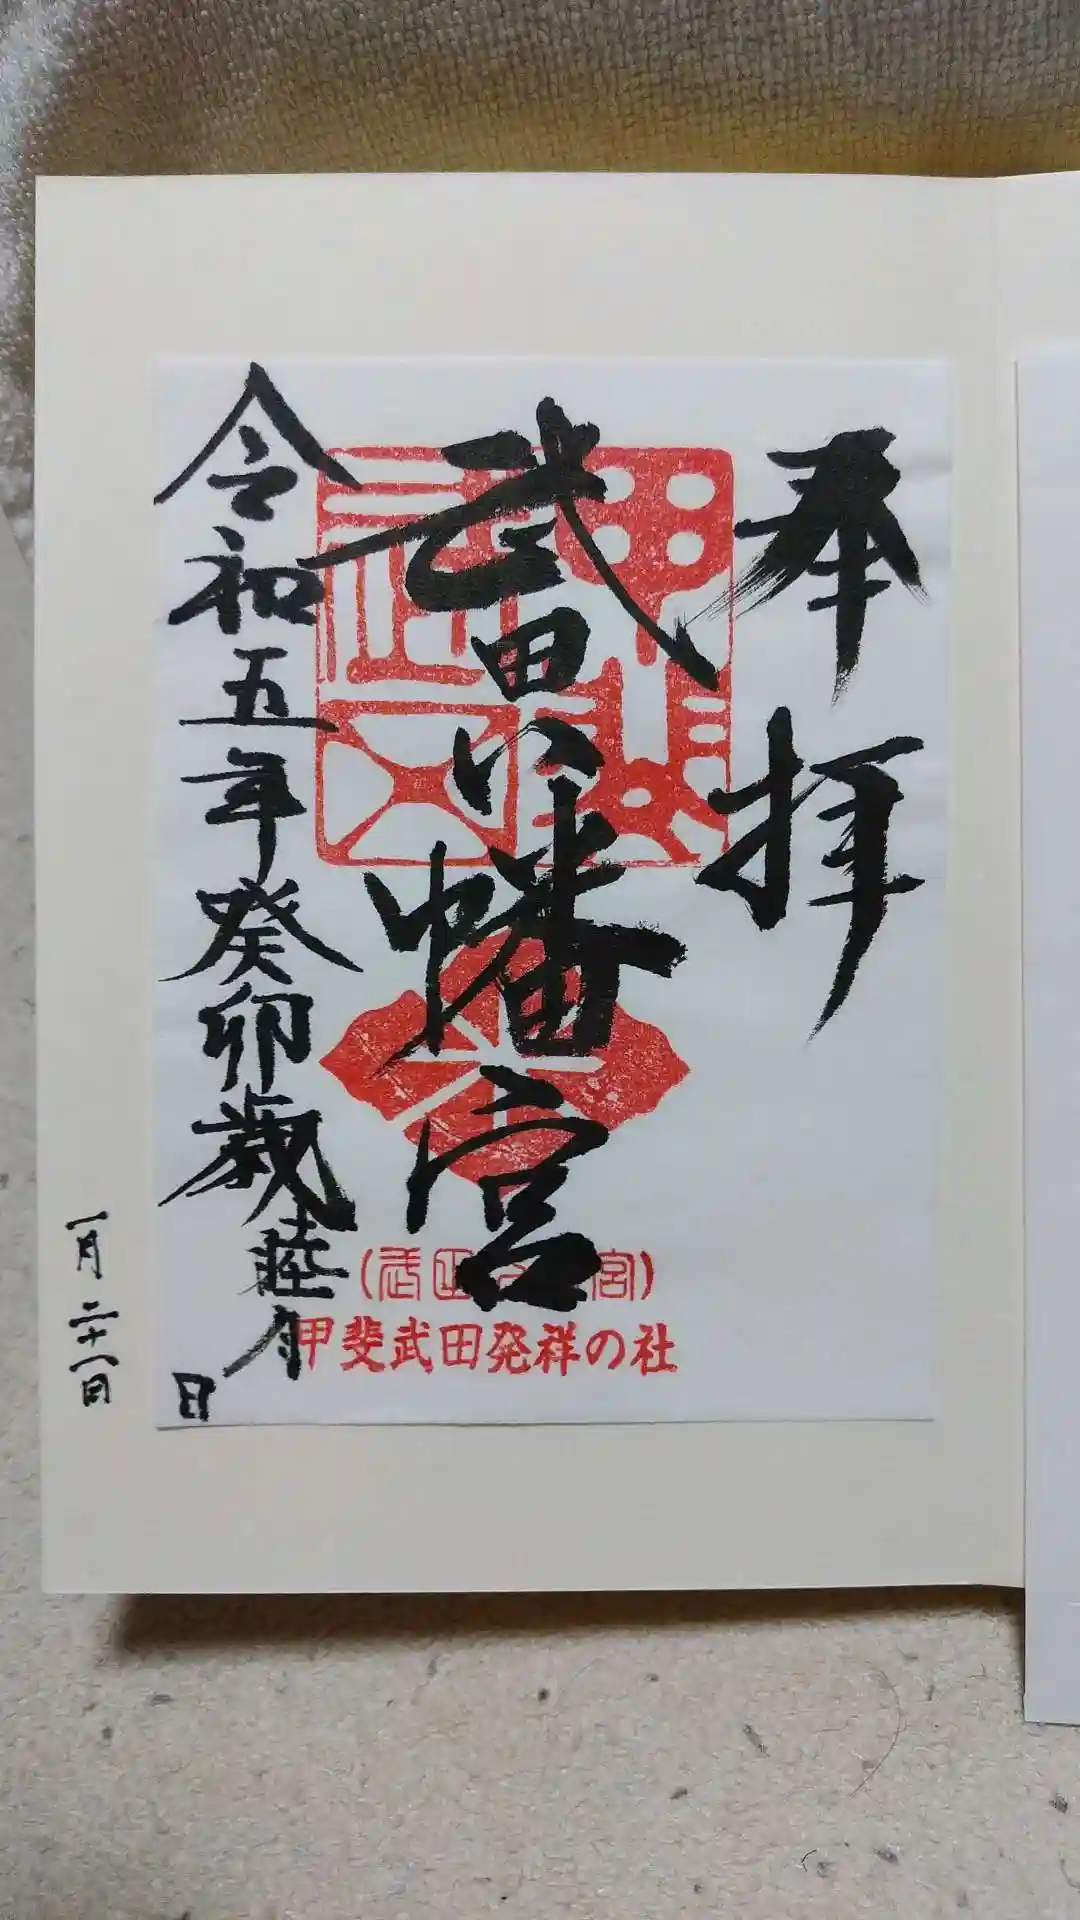 奉拝
武田八幡宮
甲斐
武田
(武田八幡宮)
甲斐武田発祥の社
令和五年癸卯歳睦月 日
一月二十一日